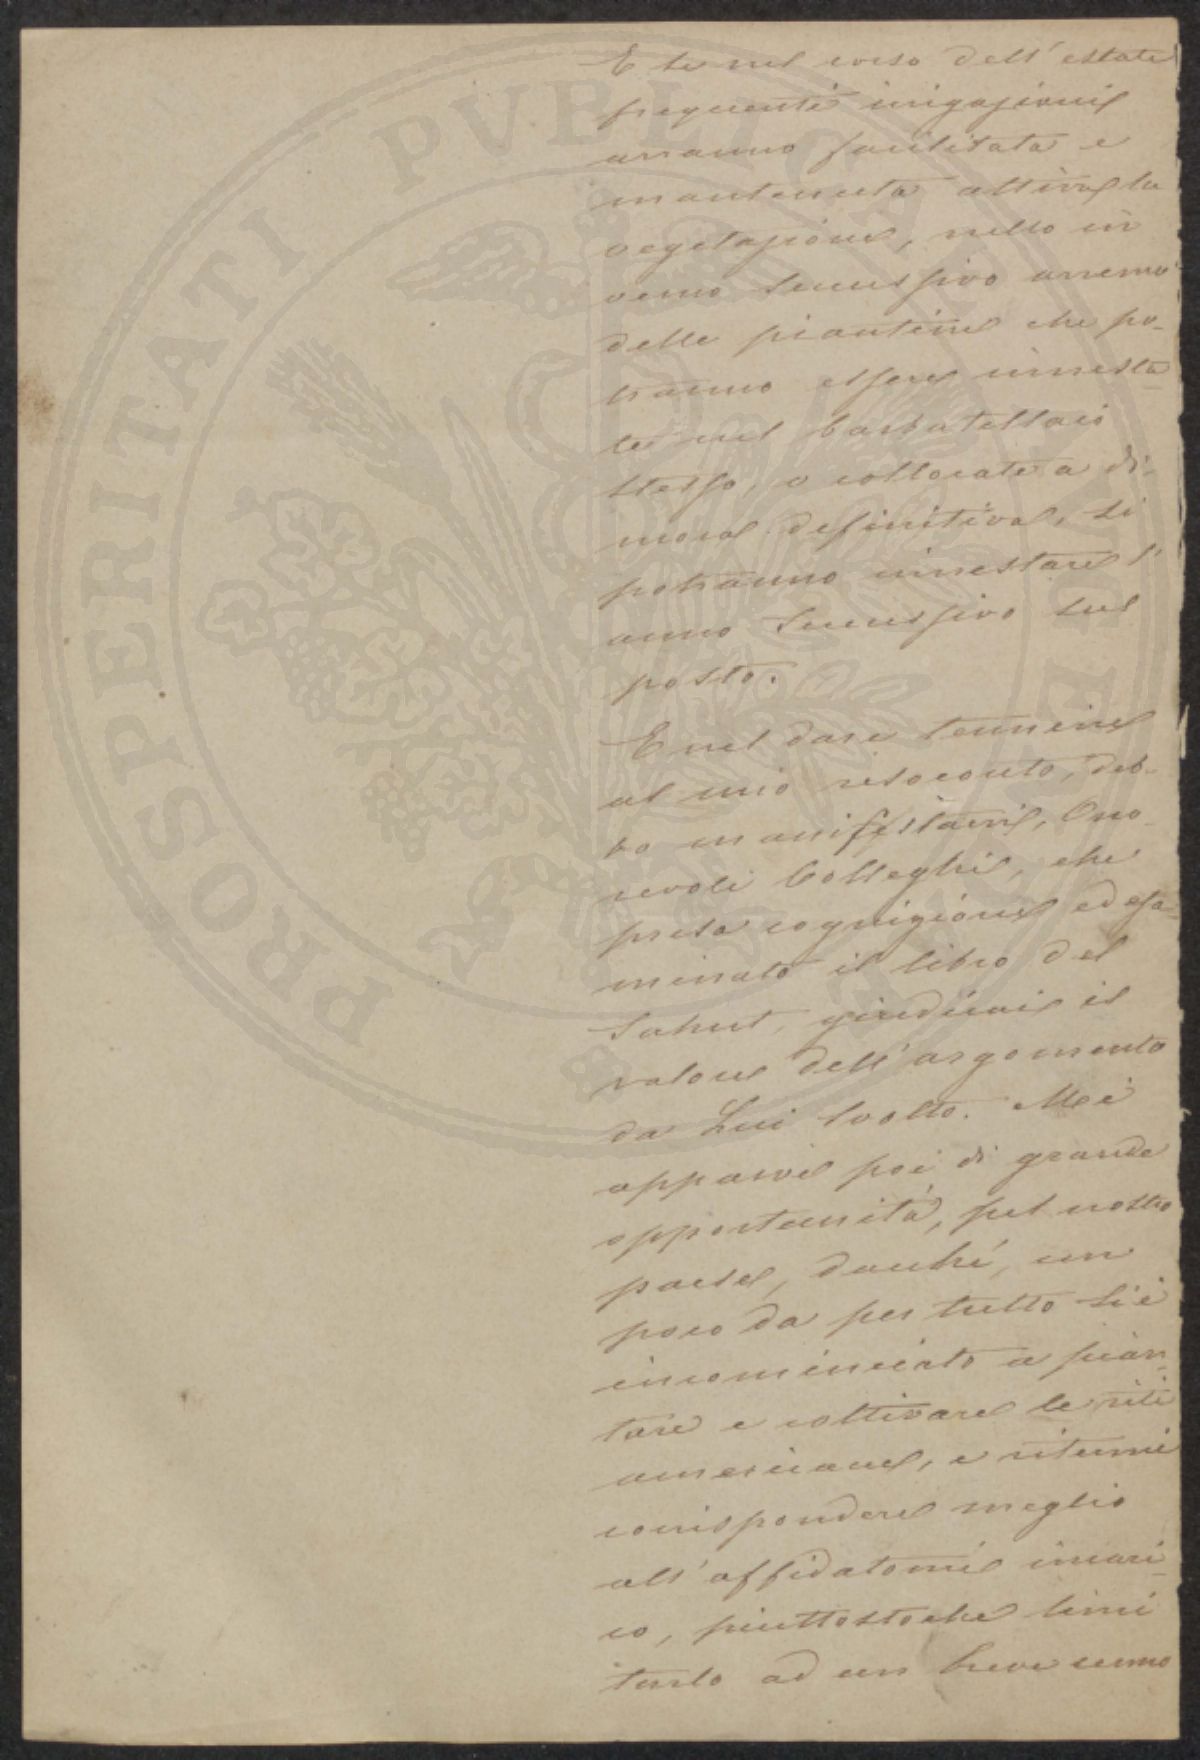 E se nel corso dell'estate
frequenti irrigazioni
avranno facilitata e
mantenuta attiva la
vegetazione, nello in
verno successivo avremo
delle piantine che po-
tranno essere innesta-
te nel barbatellaio
stesso, o collocate a di-
mora definitiva, si
potranno innestare l'
anno successivo sul
posto.
E nel dare termine
al mio resoconto, deb-
bo manifestarvi, Ono-
revoli Colleghi, che
presa cognizione ed esa-
minato il libro del
Sahut, giudicai il
valore dell'argomento
da Lui svolto. Mi
apparve poi di grande
opportunità, pel nostro
paese, dacché, un
poco da per tutto si è
incominciato a pian-
tare e coltivare le viti
americane, e ritenni
corrispondere meglio
all'affidatomi incari-
co, piuttostoche limi
tarlo ad un breve cenno
PROSPERITATI PVBLICAE AVGENDAE